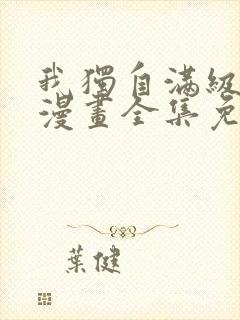 我獨自滿級
漫畫全集免
葉健